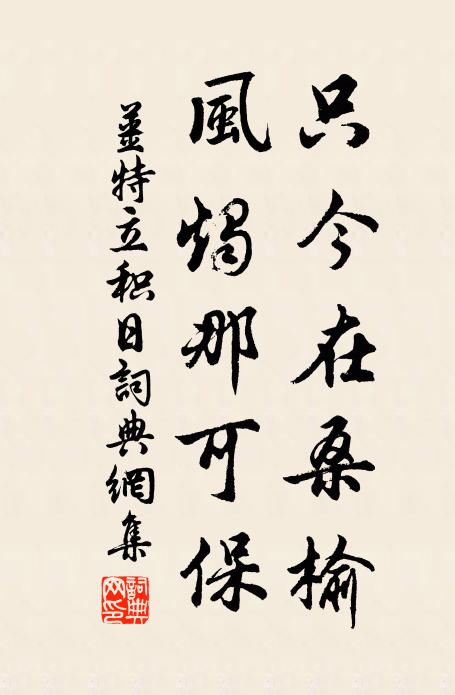 只今在桑榆
風燭那可保
姜特立积日詞典網集
詞典网印